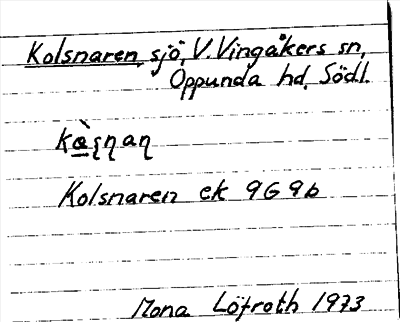 Kolsnaren, sjö, V. Vingåkers sn,
Oppunda hd, Södl.
Kolsnaren ek 9G 9b
Mona Löfroth 1973